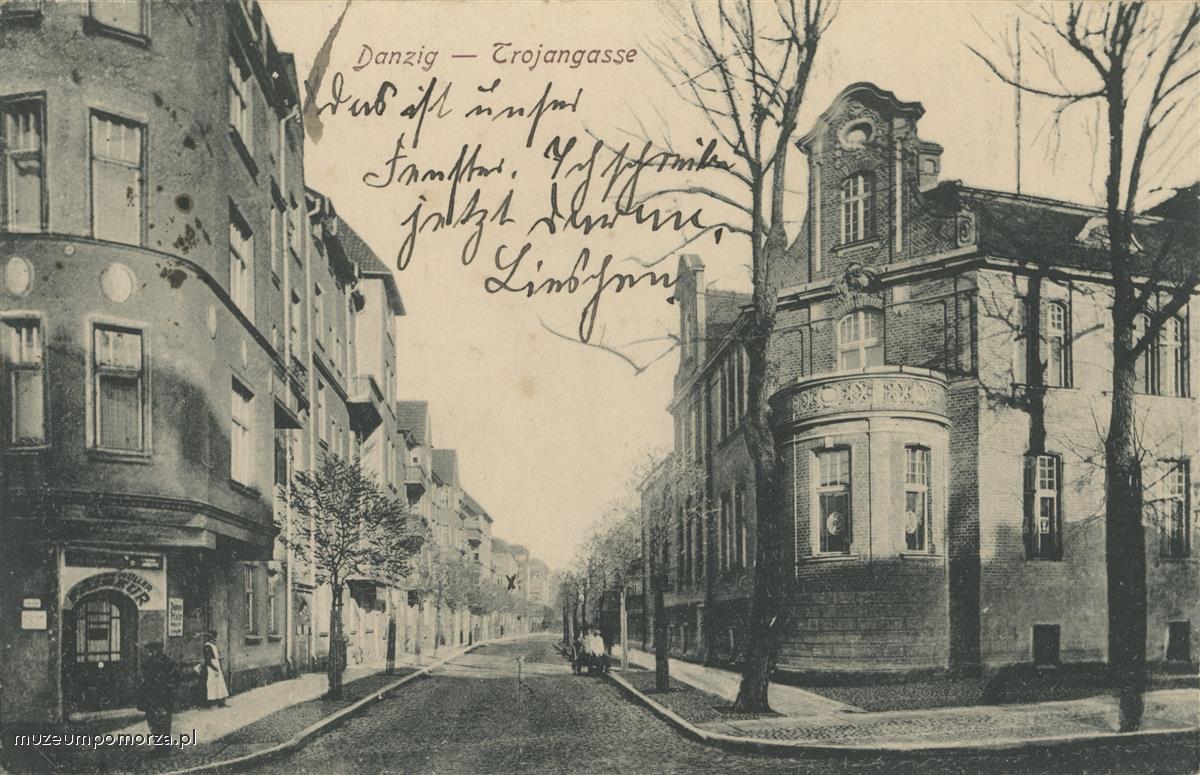 Danzig — Trojangasse
Das ist unser
Fenster. Ich schreibe
jetzt daran.
Lieschen.
muzeumpomorza.pl